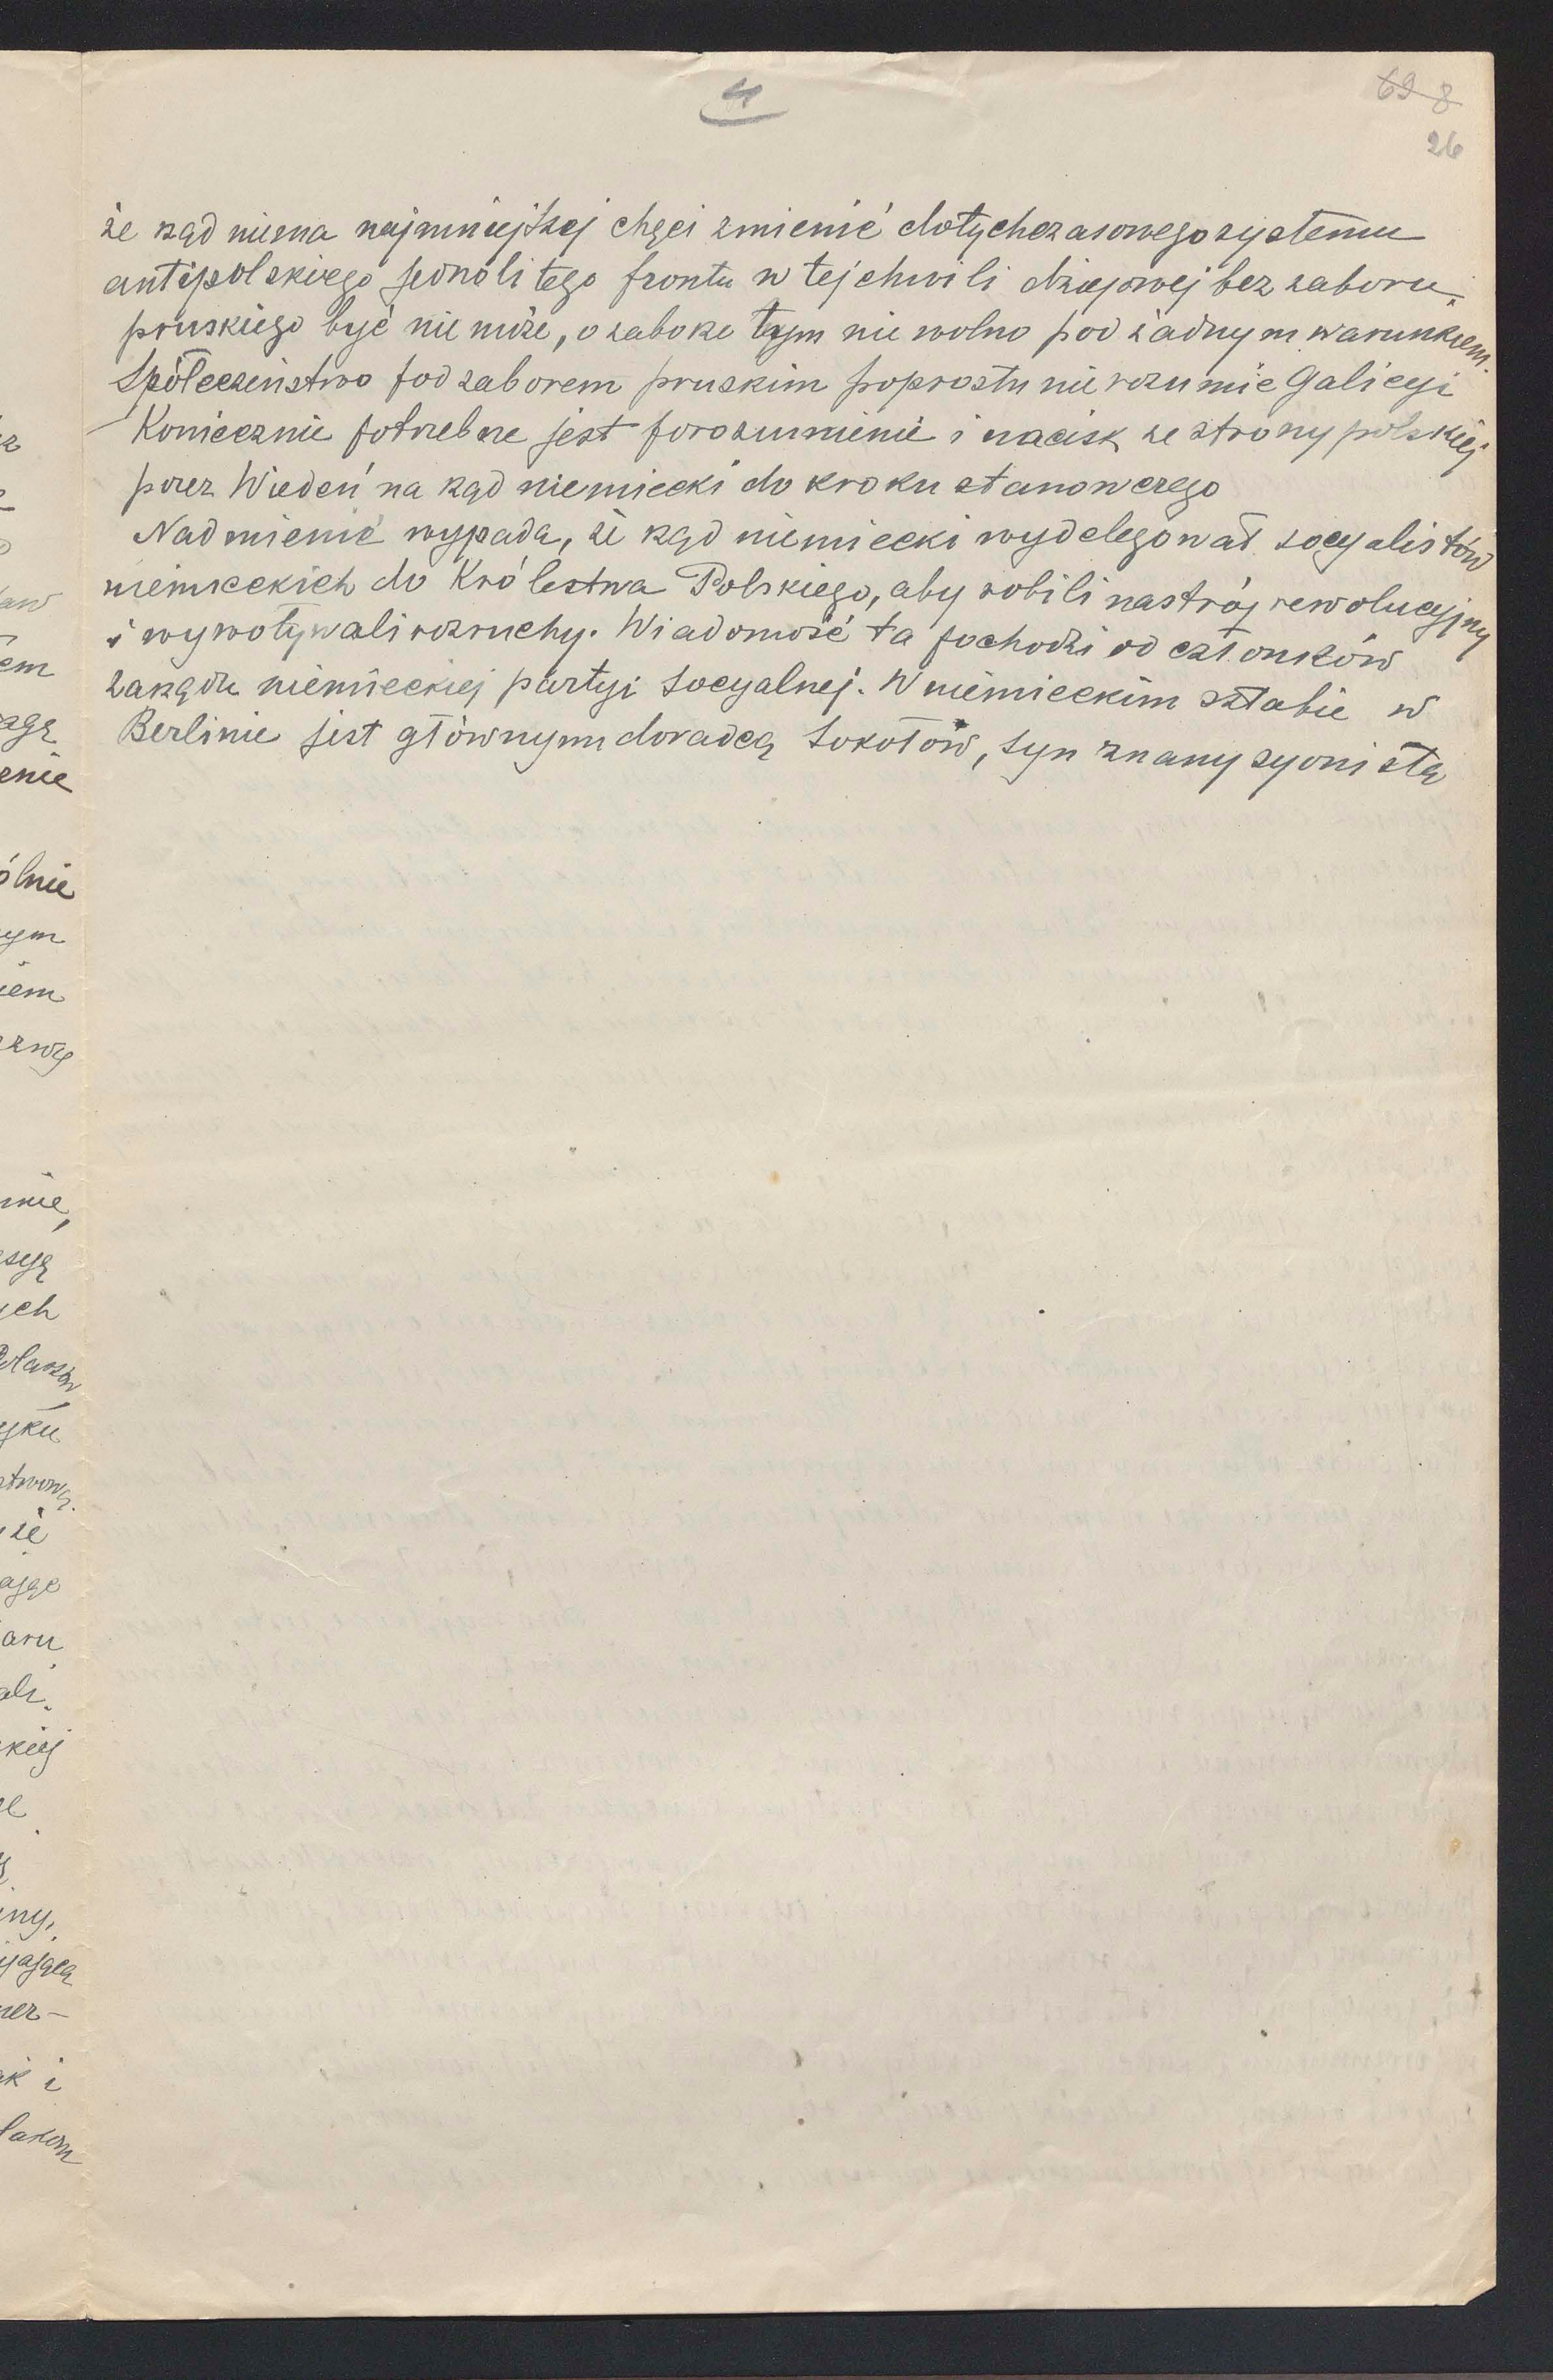 4
69 8
26
że rząd niema najmniejszej chęci zmienić dotychczasowego systemu
antipolskiego jednolitego frontu w tej chwili dziejowej bez zaboru
pruskiego być nie może, o zaborze tym nie wolno pod żadnym warunkiem.
Społeczeństwo pod zaborem pruskim poprostu nie rozumie Galicyi
Koniecznie potrzebne jest porozumienie i nacisk ze strony polskiej
przez Wiedeń na rząd niemiecki do kroku stanowczego
Nadmienić wypada, że rząd niemiecki wydelegował socyalistów
niemieckich do Królestwa Polskiego, aby robili nastrój rewolucyjny
i wywoływali rozruchy. Wiadomość ta pochodzi od członków
zarządu niemieckiej partyi socyalnej. W niemieckim sztabie w
Berlinie jest głównym doradcą Sokołów, syn znany syonista